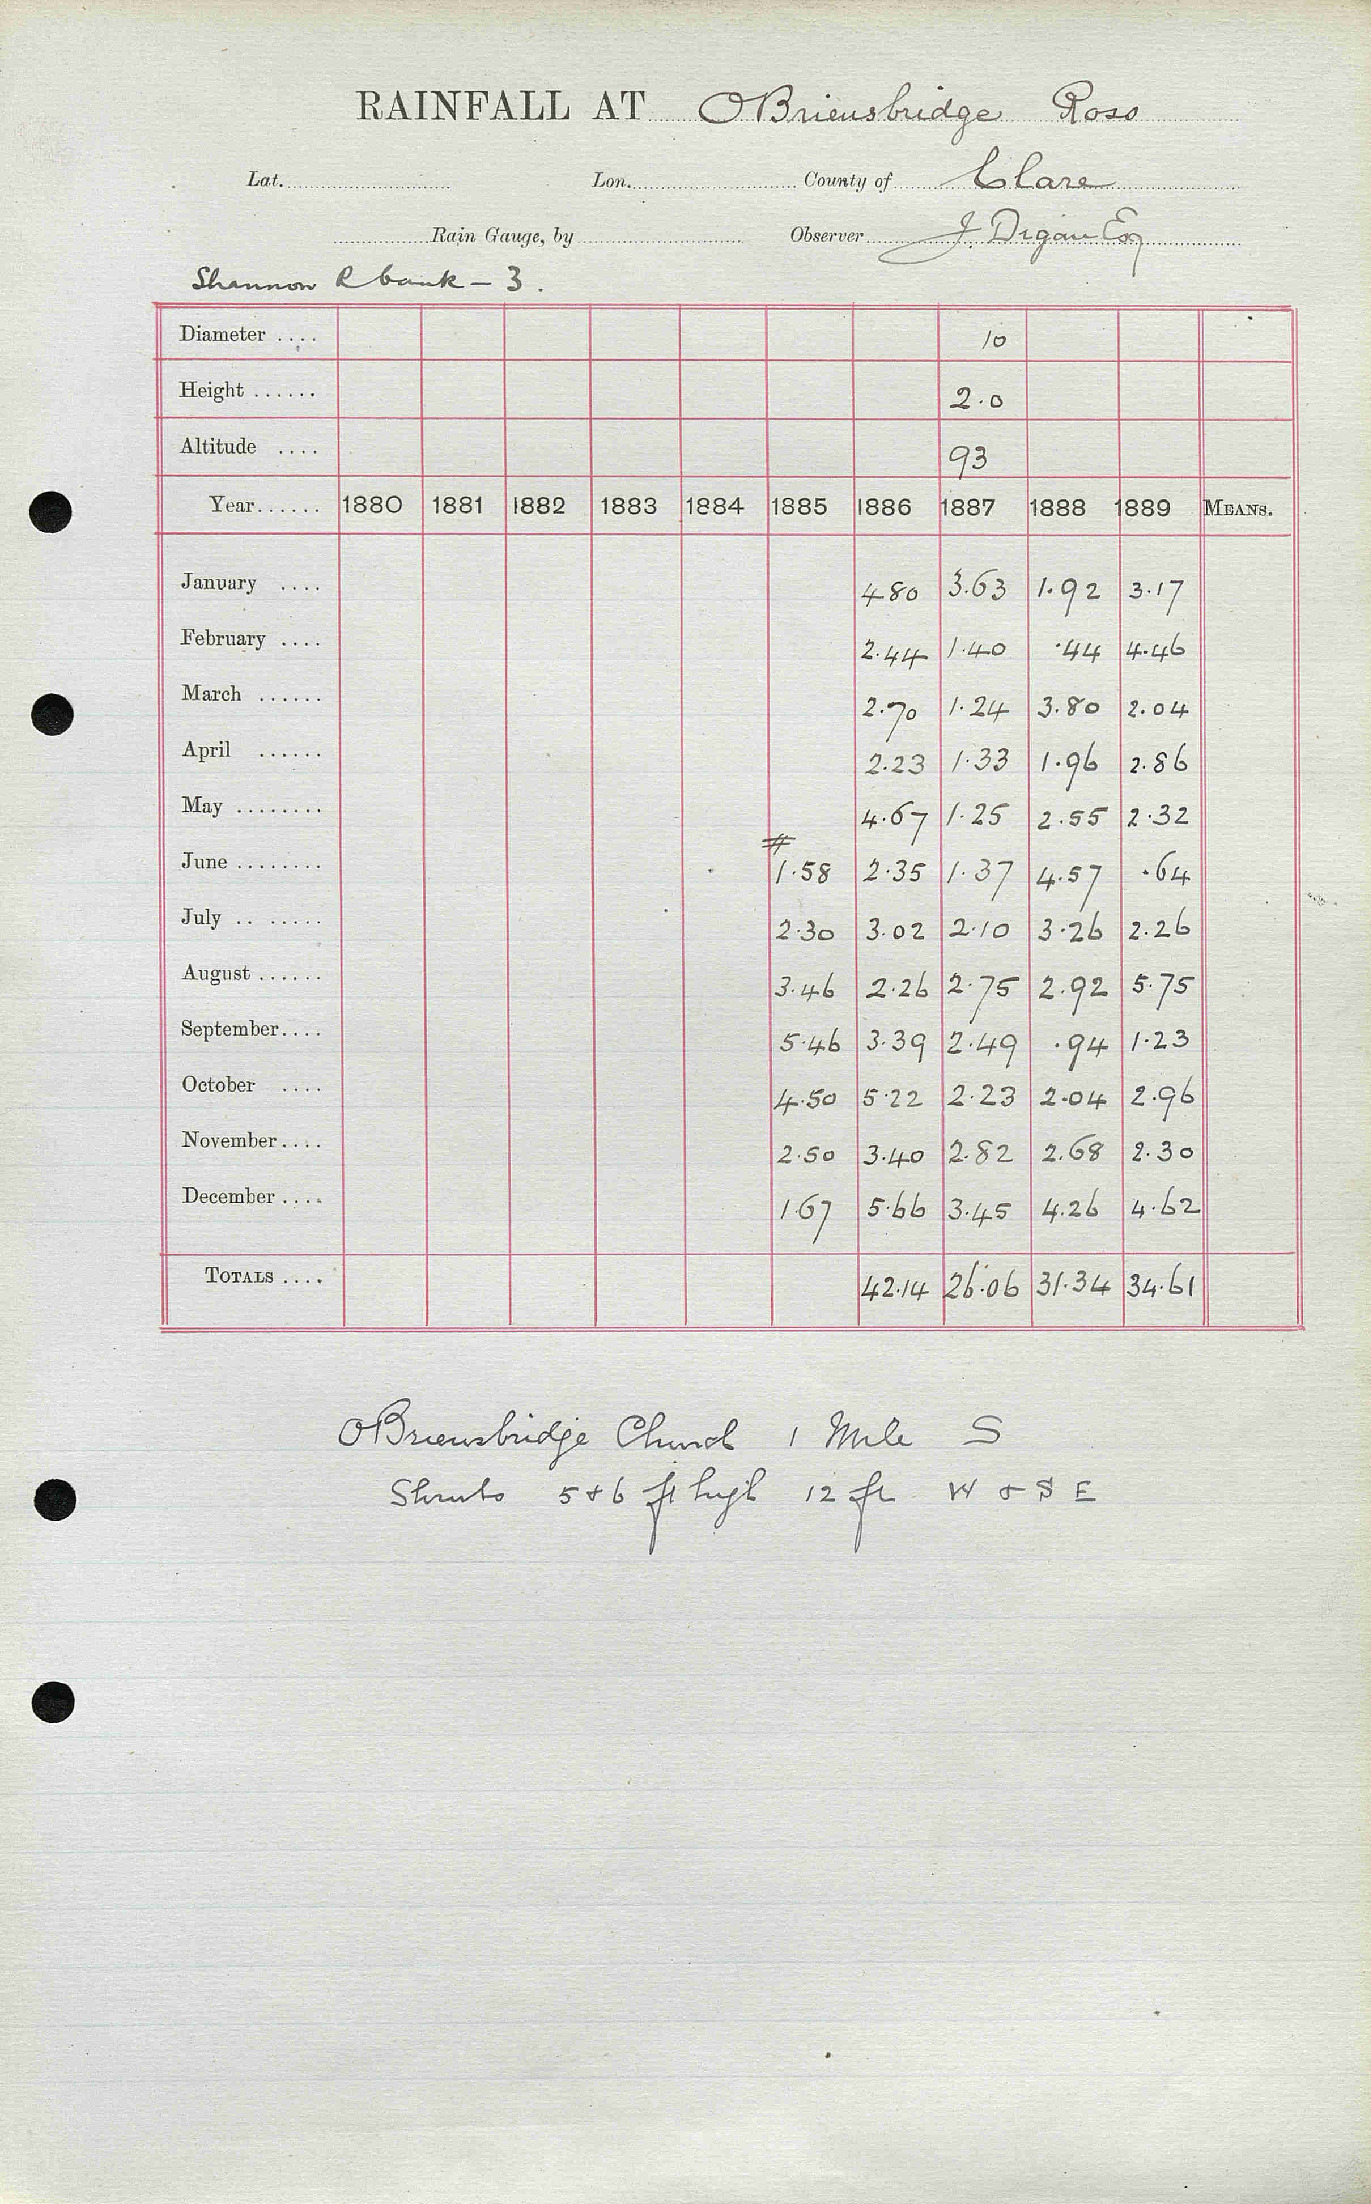 RAINFALL AT OBriensbridge Ross
Lat. Lon. County of Clare
Rain Gauge, by Observer J Digan Esq
Shannon R bank - 3.
Diameter .... 10
Height ...... 2.0
Altitude .... 93
Year...... 1880 1881 1882 1883 1884 1885 1886 1887 1888 1889 MEANS.
January .... 4 80 3.63 1.92 3.17
February .... 2.44 1.40 .44 4.46
March ...... 2.70 1.24 3.80 2.04
April ...... 2.23 1.33 1.96 2.86
May ........ 4.67 1.25 2.55 2.32
#
June ........ 1.58 2.35 1.37 4.57 .64
July .. ...... 2.30 3.02 2.10 3.26 2.26
August ...... 3.46 2.26 2.75 2.92 5.75
September.... 5.46 3.39 2.49 .94 1.23
October .... 4.50 5.22 2.23 2.04 2.96
November.... 2.50 3.40 2.82 2.68 2.30
December .... 1.67 5.66 3.45 4.26 4.62
TOTALS .... 42.14 26.06 31.34 34.61
OBriensbridge Church 1 Mile S
Shrubs 5 & 6 ft high 12 ft W & S E